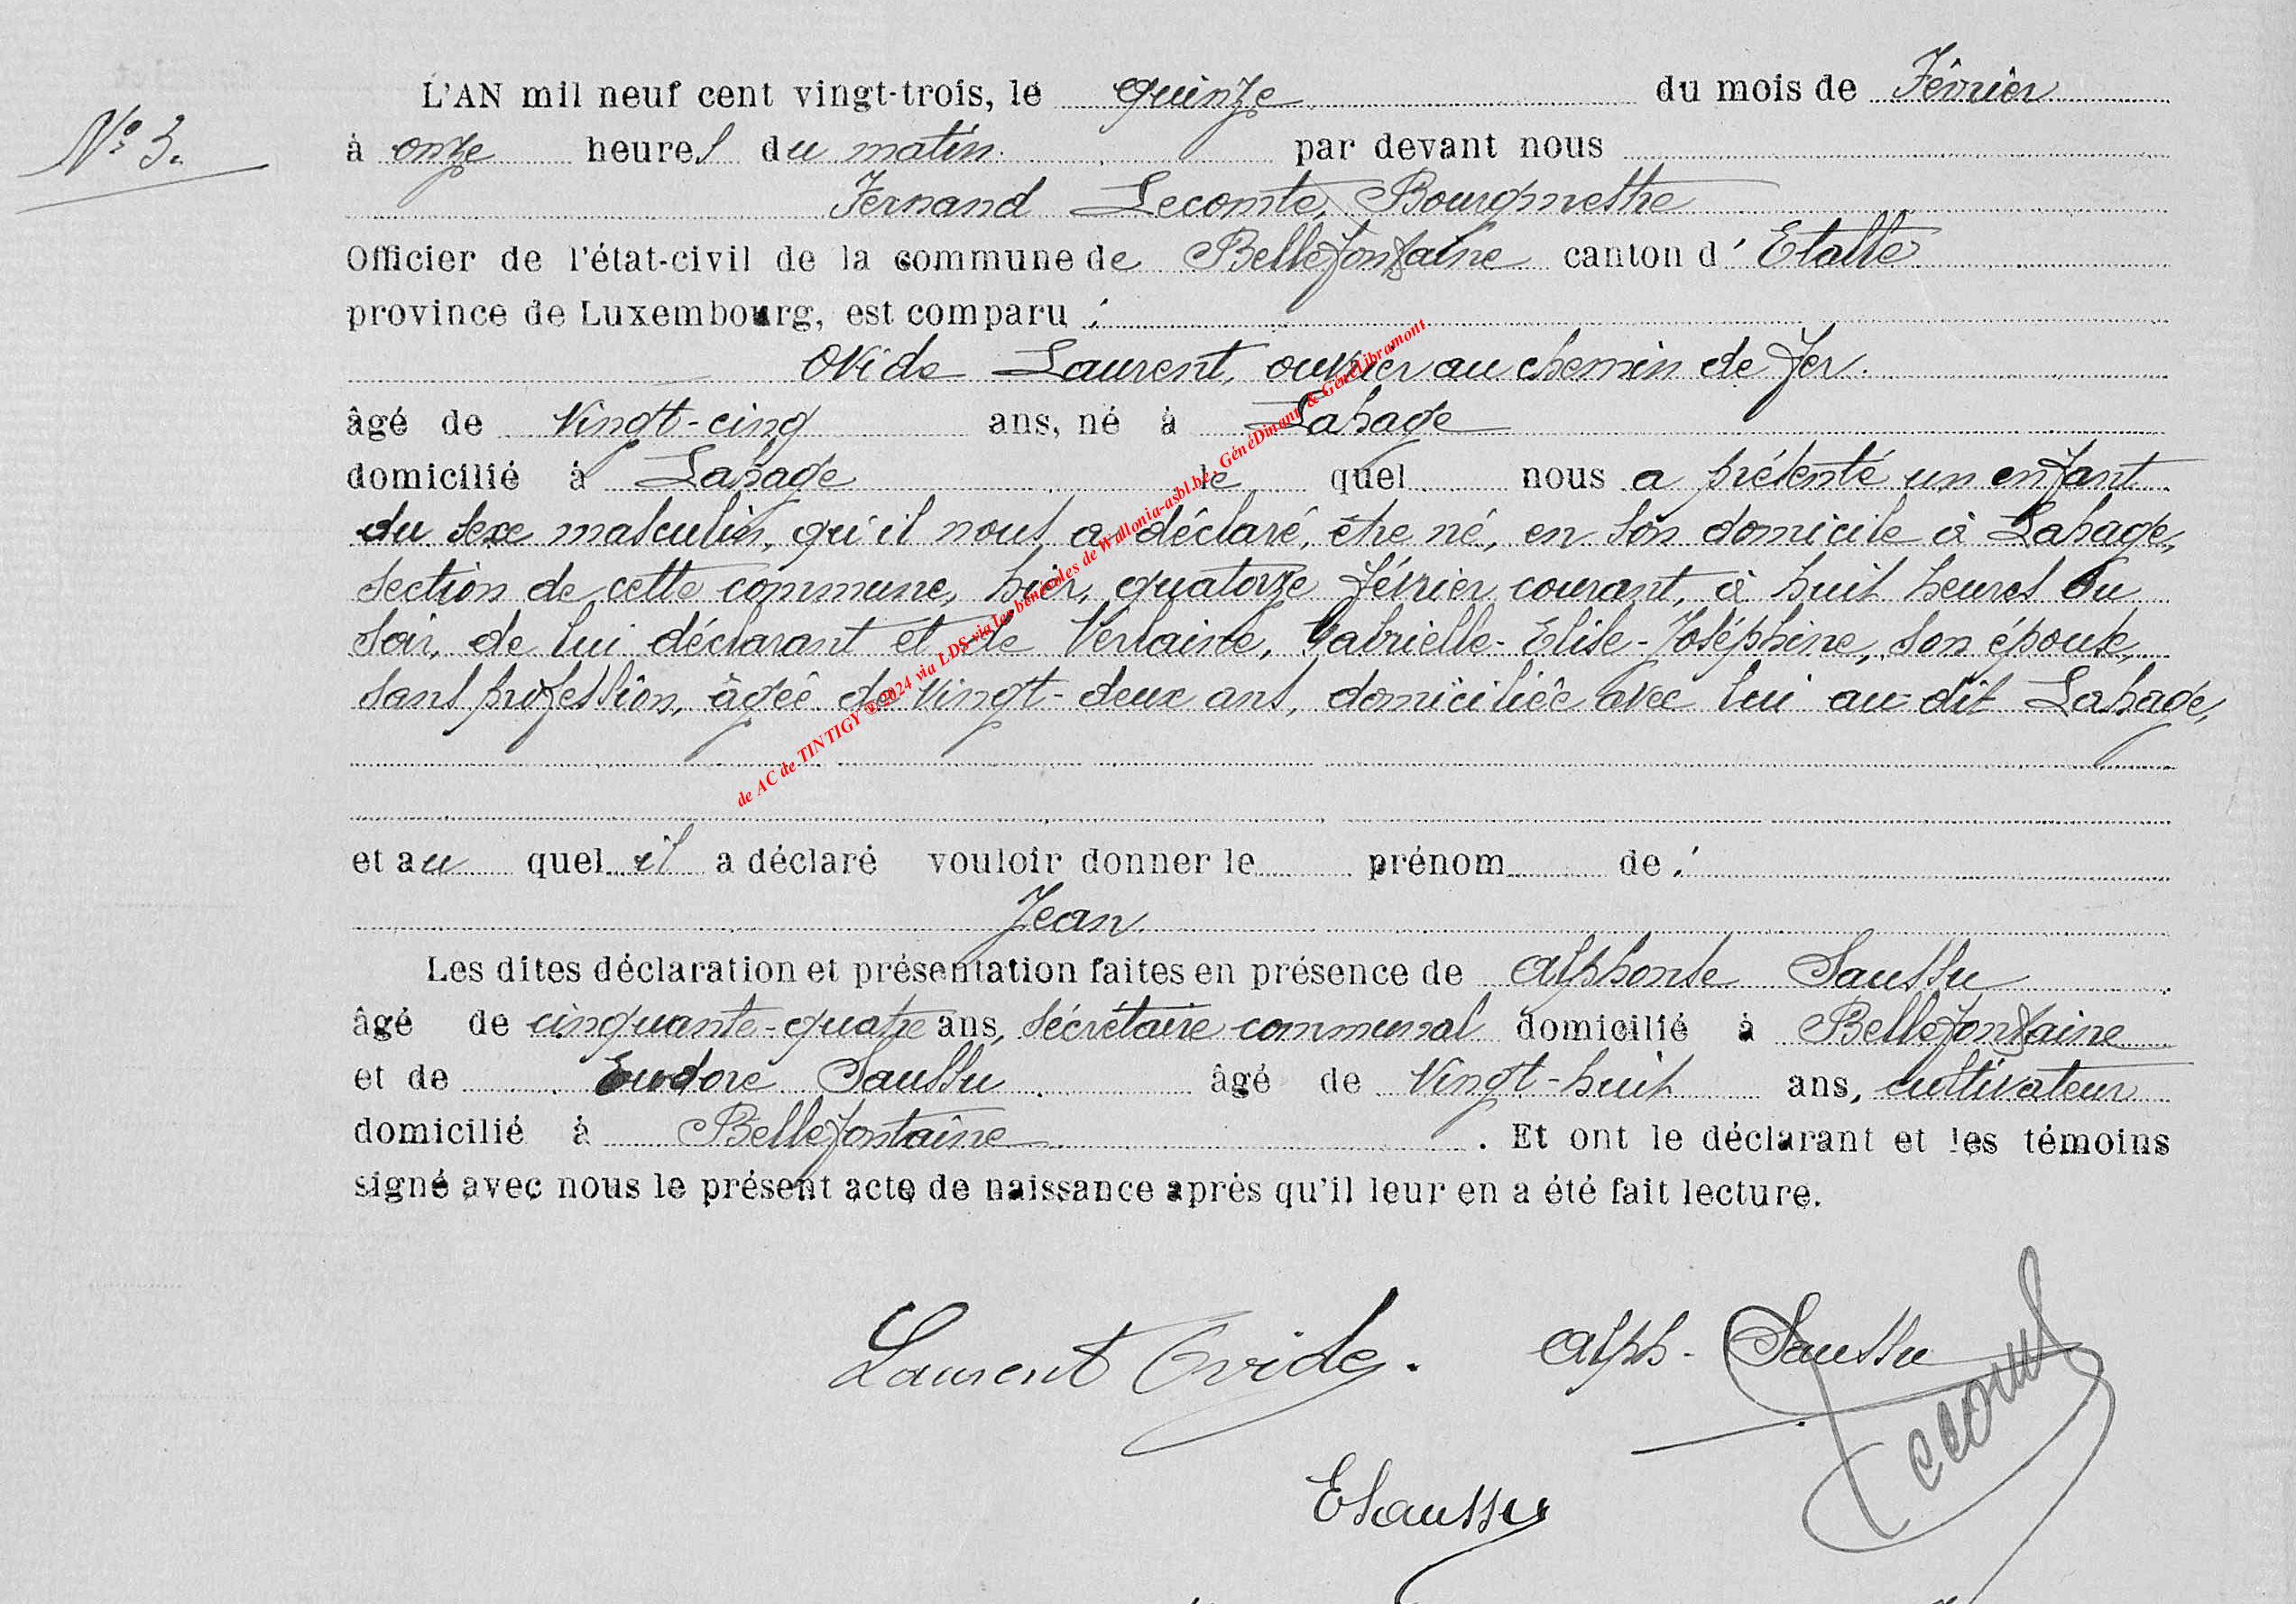 L'AN mil neuf cent vingt-trois, le quinze du mois de Février
N° 3.
à onze heures du matin par devant nous
Fernand Lecomte, Bourgmestre
Officier de l'état-civil de la commune de Bellefontaine canton d' Etalle
province de Luxembourg, est comparu :
Ovide Laurent, ouvrier au chemin de fer.
âgé de vingt-cinq ans, né à Lahage
domicilié à Lahage le quel nous a présenté un enfant
du sexe masculin, qu'il nous a déclaré, être né, en son domicile à Lahage,
section de cette commune, hier, quatorze février courant, à huit heures du
soir, de lui déclarant et de Verlaine, Gabrielle-Elise-Joséphine, son épouse,
sans profession, âgée de vingt-deux ans, domiciliée avec lui au dit Lahage,
et au quel il a déclaré vouloir donner le prénom de :
Jean
Les dites déclaration et présentation faites en présence de Alphonse Saussu
âgé de cinquante-quatre ans, sécrétaire communal domicilié à Bellefontaine
et de Eudore Saussu âgé de vingt-huit ans, cultivateur
domicilié à Bellefontaine . Et ont le déclarant et les témoins
signé avec nous le présent acte de naissance après qu'il leur en a été fait lecture.
Laurent Ovide. Alph. Saussu
ESaussu
de AC de TINTIGY ® 2024 via LDS via les bénévoles de Wallonia-asbl.be, GénéDinant & GénéLibramont